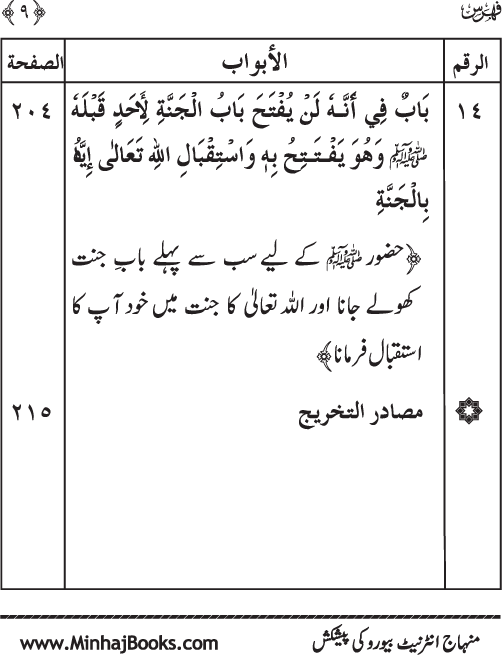 فهرس ﴿٩﴾
الرقم الأبواب الصفحة
١٤ بَابٌ فِي أَنَّهُ لَنْ يُفْتَحَ بَابُ الْجَنَّةِ لِأَحَدٍ قَبْلَهُ ٢٠٤
ﷺ وَهُوَ يَفْتَتِحُ بِهِ وَاسْتِقْبَالِ اللهِ تَعَالٰى إِيَّاهُ
بِالْجَنَّةِ
﴿حضور ﷺ کے لیے سب سے پہلے بابِ جنت
کھولے جانا اور اللہ تعالیٰ کا جنت میں خود آپ کا
استقبال فرمانا﴾
مصادر التخريج ٢١٥
منہاج انٹرنیٹ بیورو کی پیشکش www.MinhajBooks.com